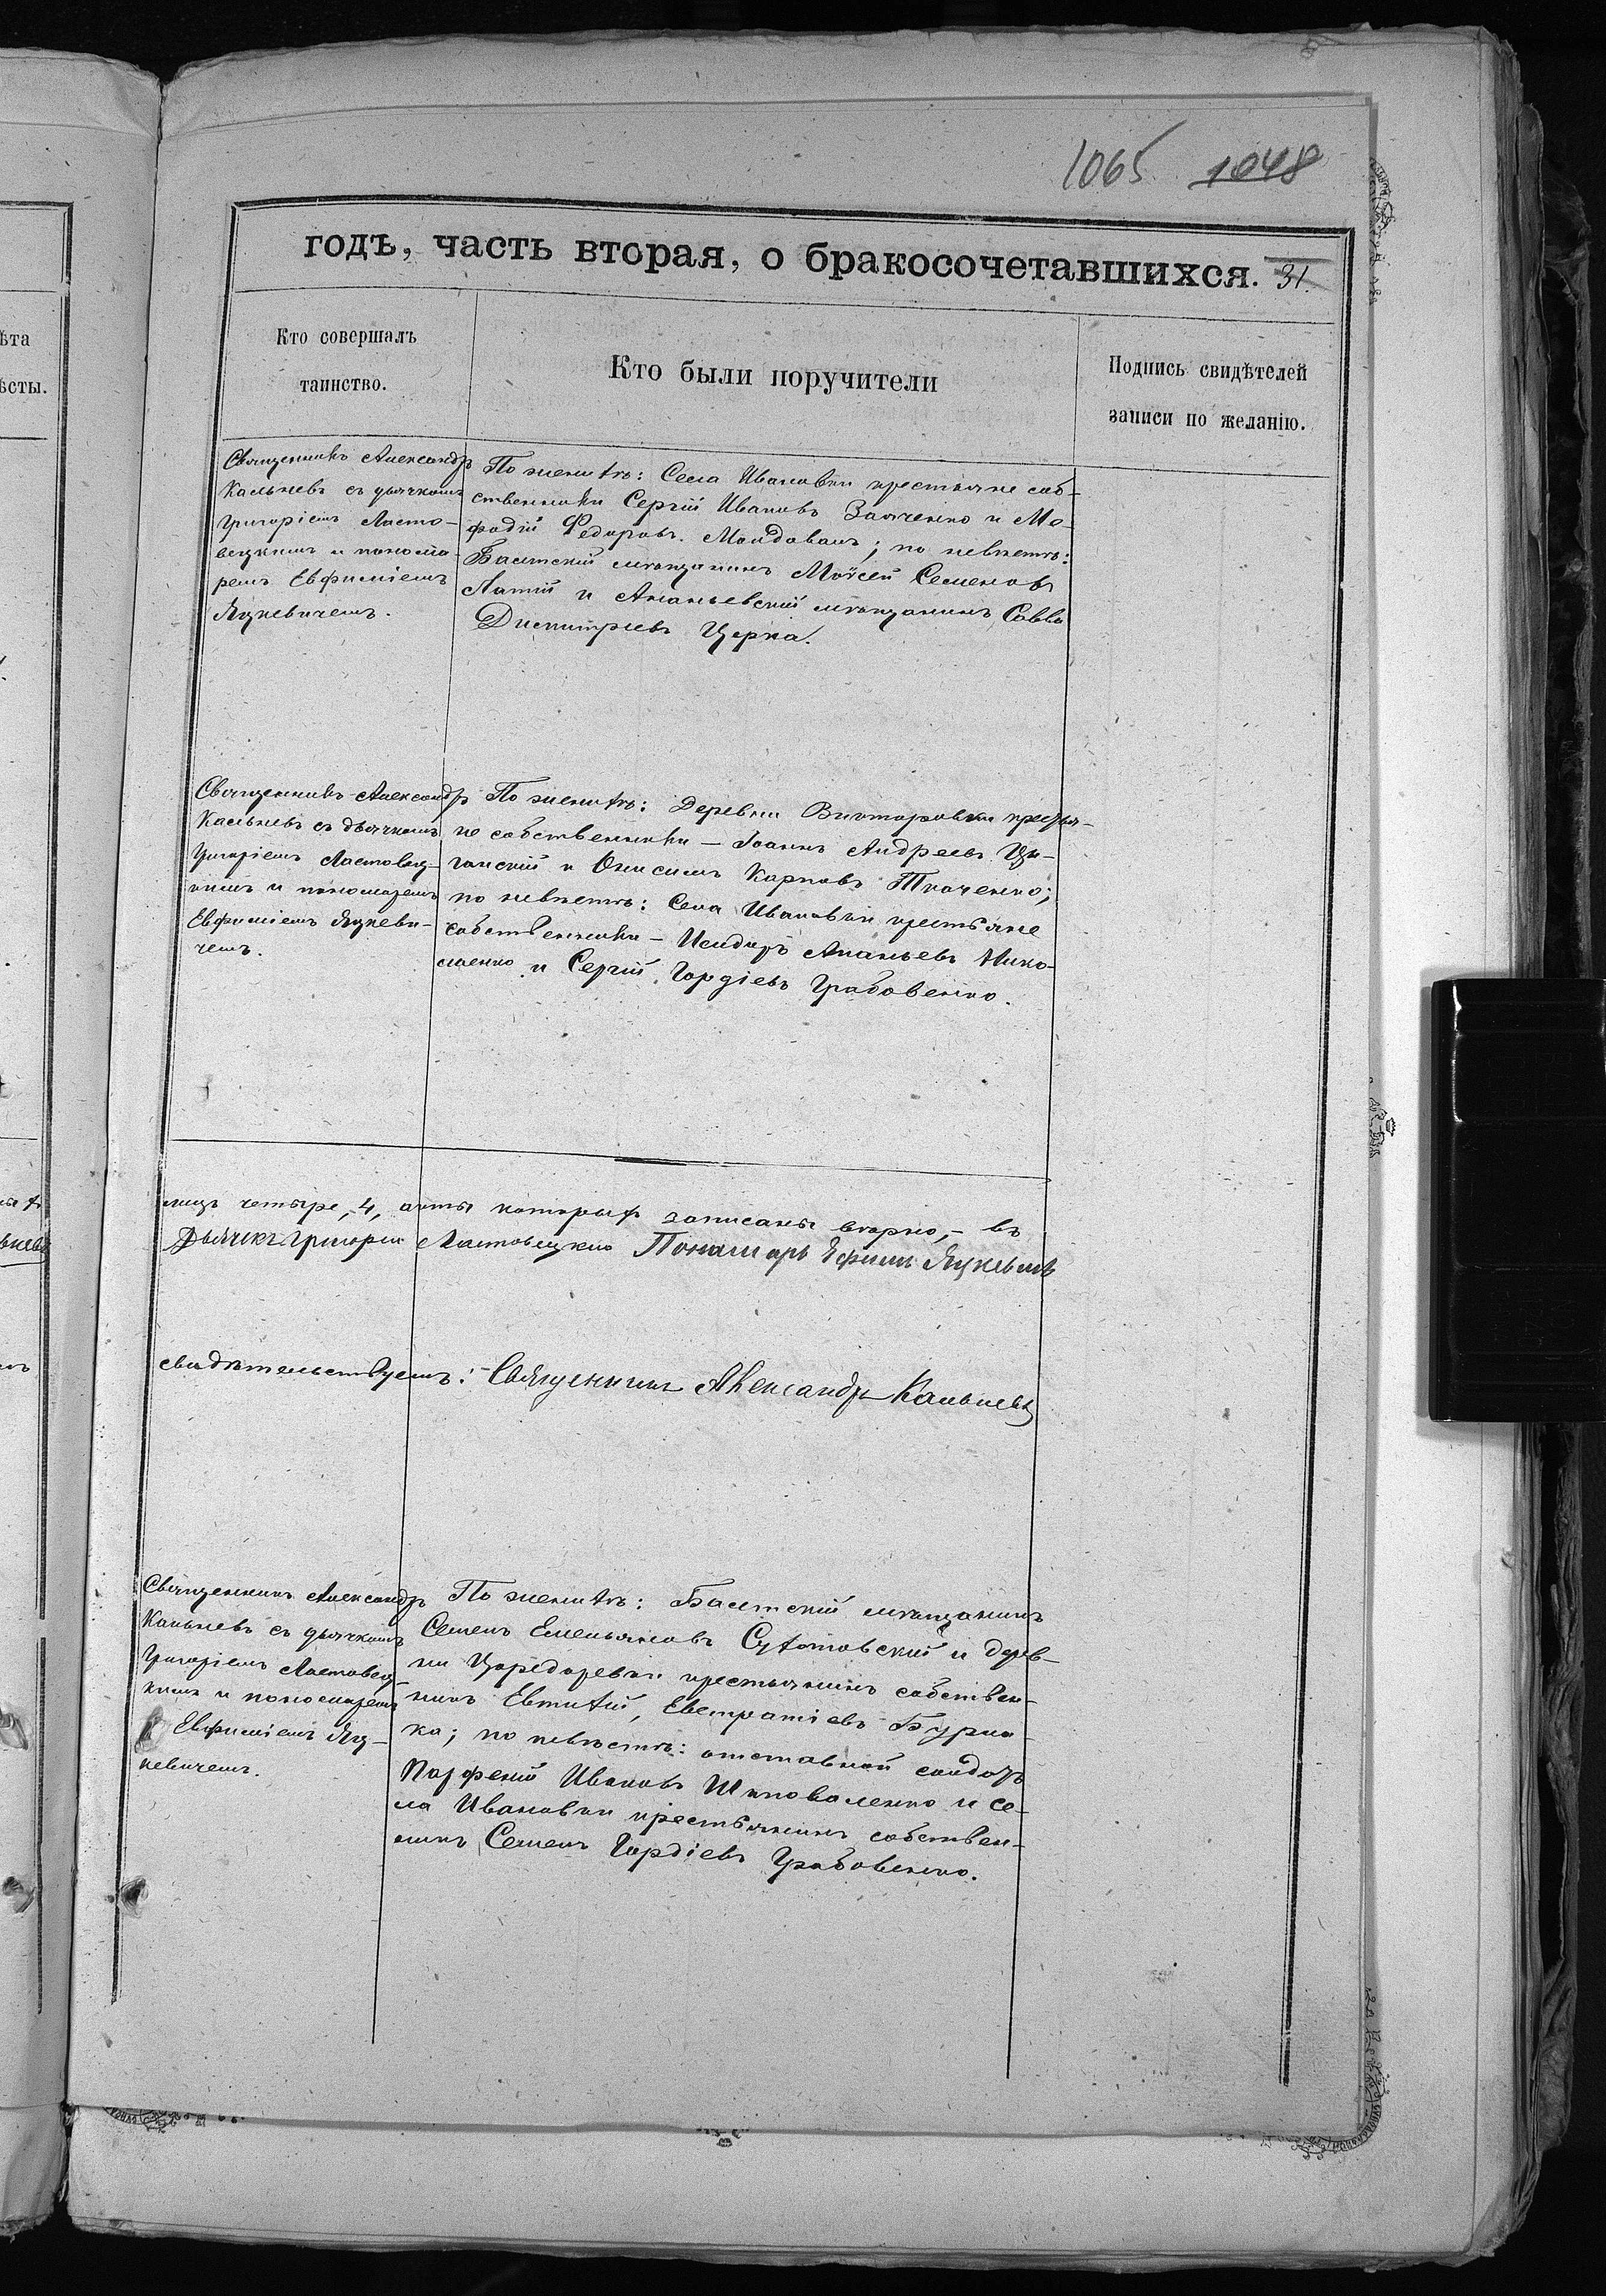 1065 1048
годъ, часть вторая, о бракосочетавшихся. 31.
Кто совершалъ
таинство.
Кто были поручители
Подпись свидѣтелей
записи по желанію.
ѣта
ѣсты.
Священникъ Александръ
Кальневъ съ дьячкомъ
Григоріемъ Ласто-
вецкимъ и понома-
ремъ Евфиміемъ
Яцкевичемъ.
По женихѣ: Села Ивановки крестьяне соб-
ственники Сергій Ивановъ Заяченко и Ме-
фодій Федоровъ Молдованъ; по невѣстѣ:
Балтскій мѣщанинъ Моѵсей Семеновъ
Латій и Ананьевскій мѣщанинъ Савва
Димитріевъ Церна.
Священникъ Александръ
Кальневъ съ дьячкомъ
Григоріемъ Ластовец-
кимъ и пономаремъ
Евфиміемъ Яцкеви-
чемъ.
По женихѣ: Деревни Викторовки крестья-
не собственники – Іоаннъ Андреевъ Цы-
ганскій и Онисимъ Карповъ Ткаченко;
по невѣстѣ: Села Ивановки крестьяне
собственники – Исидоръ Ананьевъ Нико-
лаенко и Сергій Гордіевъ Грабовенко.
лицъ четыре, 4, акты которыхъ записаны вѣрно, – въ
Дьячекъ Григорій Ластовецкій Пономарь Ефимъ Яцкевичъ
свидѣтельствуемъ: Священникъ Александръ Кальневъ
Священникъ Александръ
Кальневъ съ дьячкомъ
Григоріемъ Ластовец-
кимъ и пономаремъ
Евфиміемъ Яц-
кевичемъ.
По женихѣ: Балтскій мѣщанинъ
Семенъ Емельяновъ и дерев-
ни Царедаревки крестьянинъ собствен-
никъ Евтихій Евстратіевъ Бурла-
ка; по невѣстѣ: отставной солдатъ
Парфеній Ивановъ Шаповаленко и се-
ла Ивановки крестьянинъ собствен-
никъ Семенъ Гордіевъ Грабовенко.